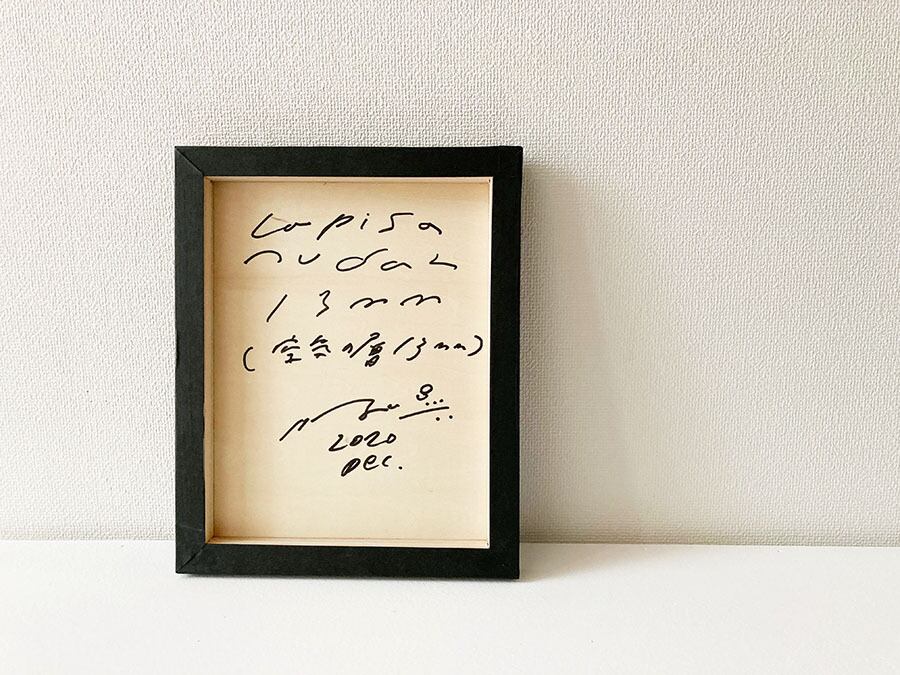 Lapisa
nudan
13mm
(空気の層13mm)
2020
Dec.